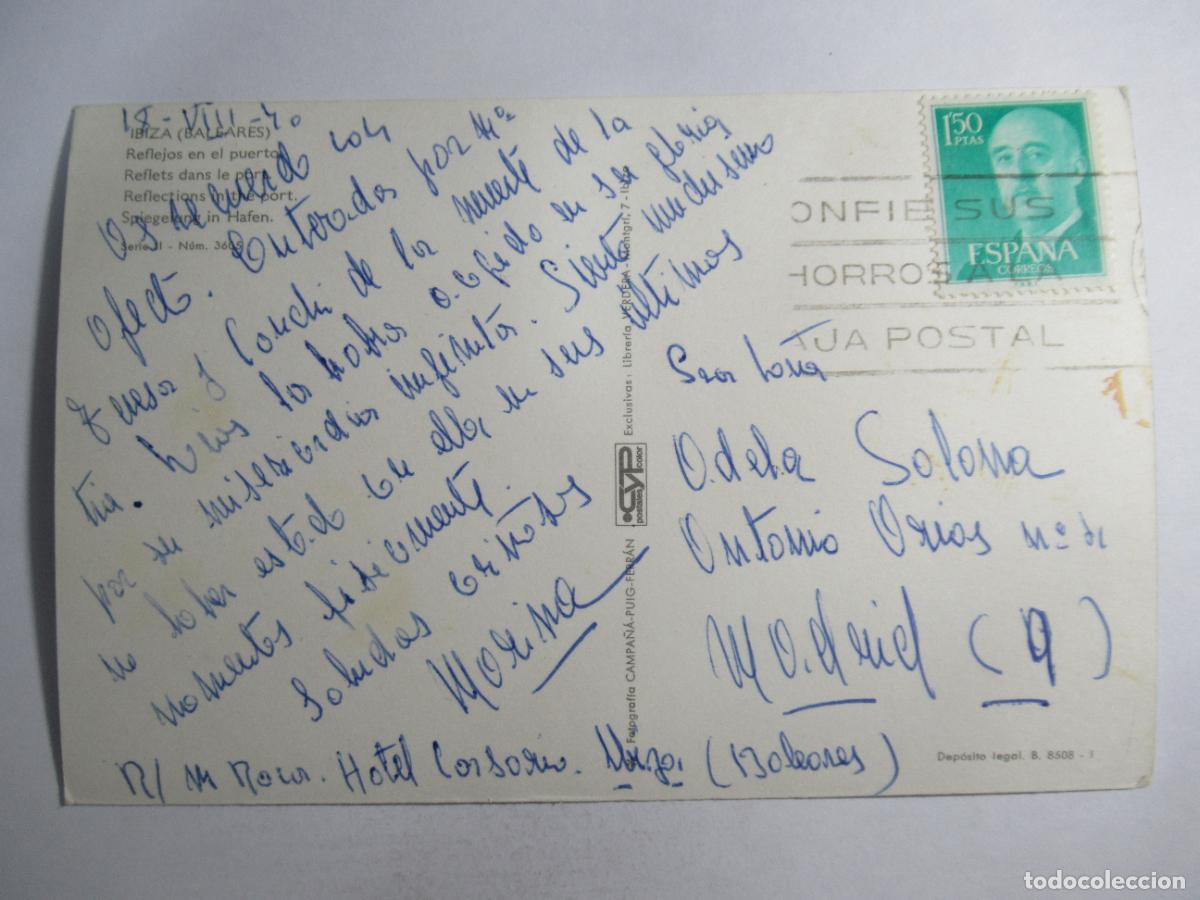 18-VIII-
IBIZA (BALEARES)
Reflejos en el puerto
Reflets dans le port
Reflections in the port.
Spiegelung in Hafen.
Serie II - Núm. 3605
Os recuerdo con
afecto. Enterados por Mª
Teresa y Conchi de la muerte de la
tía. Dios la habrá acogido en su gloria
por su misericordia infinita. Siento muchísimo
no haber estado con ella en sus últimos
momentos físicamente.
Saludos cariñosos
Marina
Hotel Corsario. Ibiza. (Baleares)
Fotografía CAMPAÑÁ-PUIG-FERRÁN
CYP
postales color
Exclusivas: Librería VERDERA - Montgrí, 7 - Ibiza
1'50
PTAS
ESPAÑA
CORREOS
ONFIE SUS
HORROS A
AJA POSTAL
Odela Solana
Antonio Arias nº
Madrid (9)
Depósito legal. B. 8508 -
todocoleccion